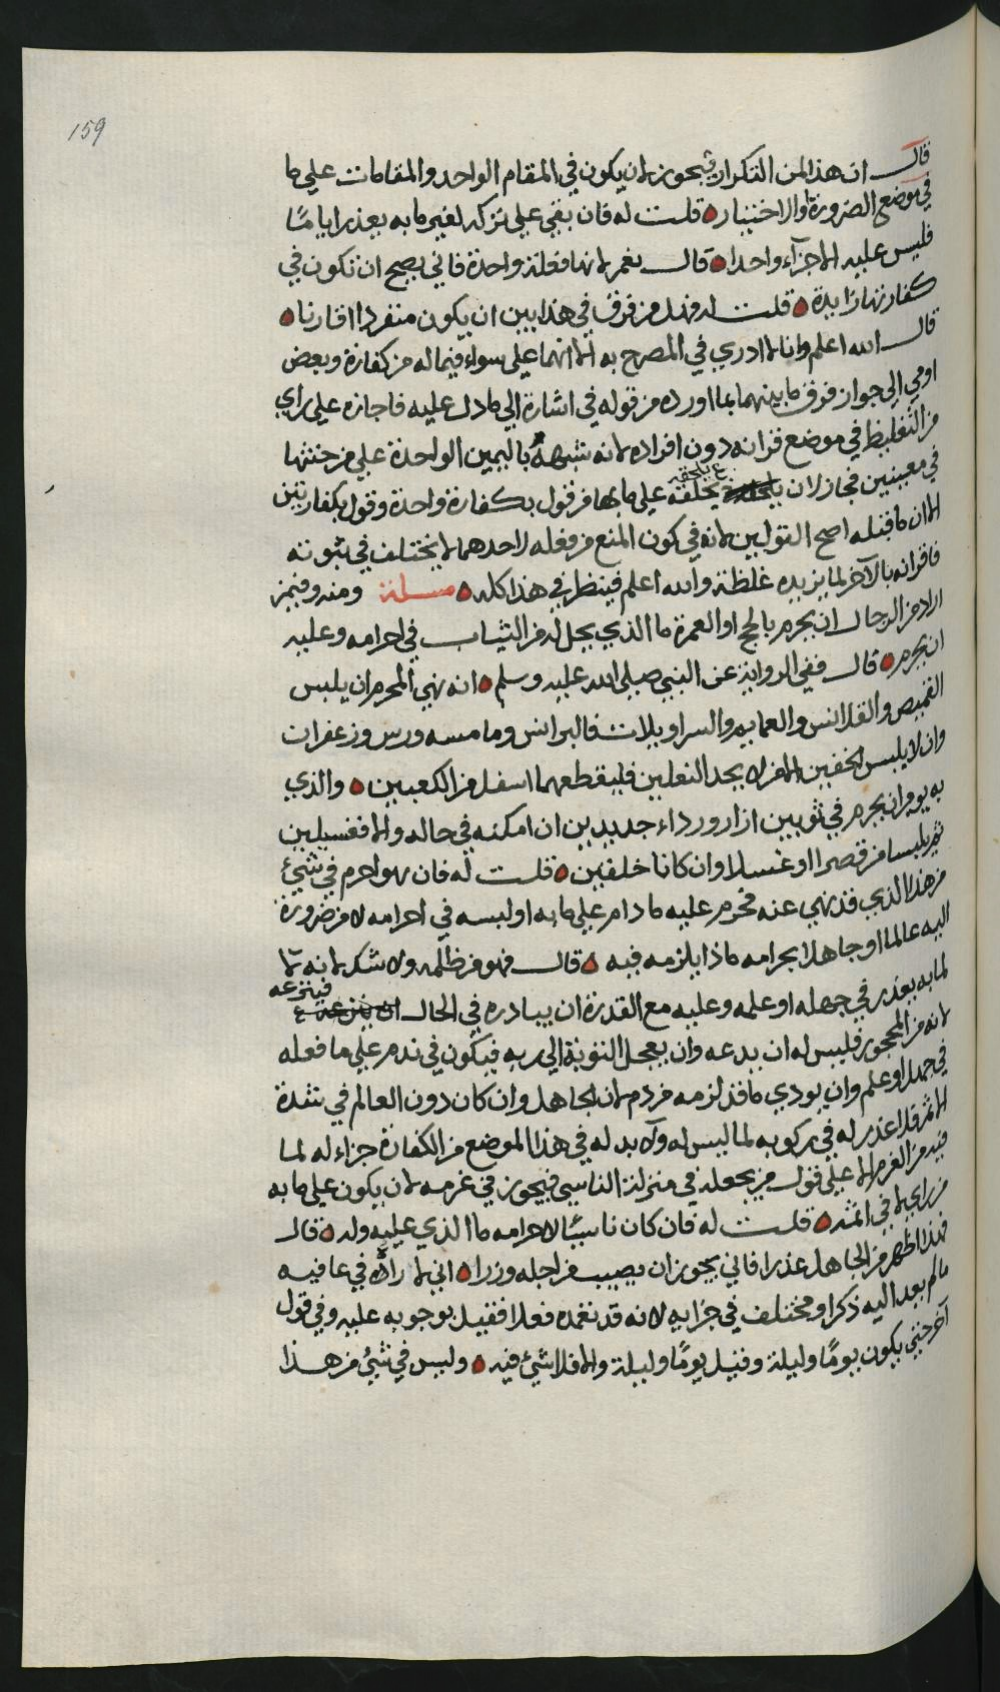 159
قال ان هذا لمن التكرار فيجوز لان يكون في المقام الواحد والمقامات على ما
في موضع الضرورة او الاختيار قلت له فان بقي على تركه لغير ما به يعذر اياما
فليس عليه الا جزآء واحدا قال نعم لانها فعلة واحدة فاني يصح ان تكون في
كفارتها زايدة قلت له فهل من فرق في هذا بين ان يكون منفردا او قارنا
قال الله اعلم وانا لا ادري في المصرح به الا انهما على سواء فيما له من كفارة وبعض
اومي الى جواز فرق ما بينهما بما اورده من قوله في اشارة الى ما دل عليه فاجازه على راي
من التغليظ في موضع قرانه دون افراده لانه شبهه باليمين الواحدة على من حنثها
في معينين فجاز لان يلحقه على ما بها من قول بكفارة واحدة وقول بكفارتين
الا ان ما قبله اصح القولين لانه في كون المنع من فعله لاحدهما لا يختلف في ثبوته
فاقرانه بالآخر لما يزيده غلظة والله اعلم فينظر في هذا كله مسئلة ومنه وفيمن
اراد من الرجال ان يحرم بالحج او العمرة ما الذي يحل له من الثياب في احرامه وعليه
ان يحرم قال ففي الرواية عن النبي صلى الله عليه وسلم انه نهي المحرم ان يلبس
القميص والقلانس والعمايم والسراويلات فالبرانس وما مسه ورس وزعفران
وان لا يلبس الخفين الا من لا يجد النعلين فليقطعهما اسفل من الكعبين والذي
به يومر ان يحرم في ثوبين ازار ورداء جديدين ان امكنه في حاله والا فغسيلين
ثم يلبسا من قصرا او غسلا وان كانا خلقين قلت له فان هو احرم في شيئ
من هذا الذي قد نهي عنه فحرم عليه ما دام على ما به او لبسه في احرامه لا من ضرورة
اليه عالما او جاهلا بحرامه ماذا يلزمه فيه قال فهو من ظلمه ولا شك لانه لا
لما به يعذر في جهله او علمه وعليه مع القدرة ان يبادره في الحال ان ينزعه فينزعه
لانه من المحجور فليس له ان يدعه وان يعجل التوبة الى ربه فيكون في ندم على ما فعله
في جهل او علم وان يودي ما قد لزمه من دم لان الجاهل وان كان دون العالم في شدة
الاثم فلا عذر له في ركوبه لما ليس له ولا بد له في هذا الموضع من الكفارة جزاء له لما
فيه من الغرم الا على قول من يجعله في منزلة الناسي فيجوز في غرمه لان يكون على ما به
من راي لا في اثمه قلت له فان كان ناسيًا لاحرامه ما الذي عليه وله قال
فهذا اظهر من الجاهل عذرا فاني يجوز ان يصيب من اجله وزرا اني لا راه في عافيه
ما لم يعد اليه ذكرا ومختلف في جزايه لانه قد تعمده فعلا فقيل بوجوبه عليه وفي قول
آخر حتى يكون يومًا وليلة وقيل يومًا وليلة والا فلا شيئ فيه وليس في شيئ من هذا